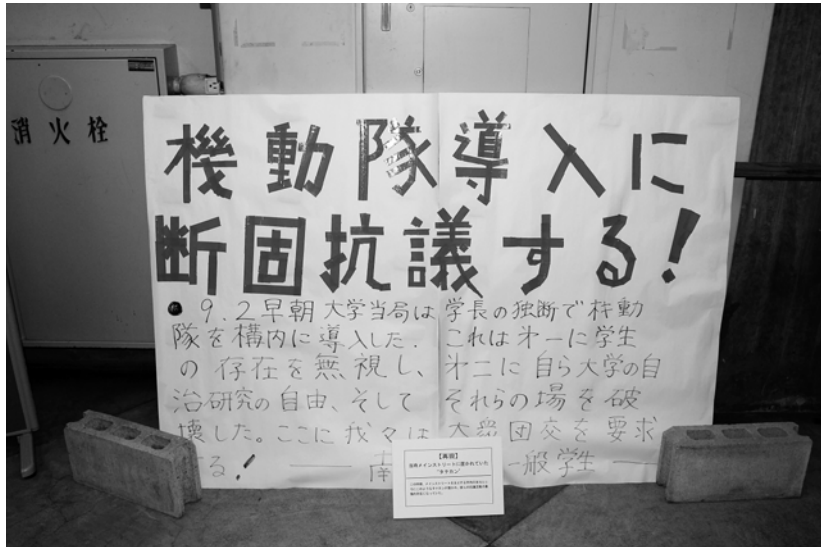 消火栓
機動隊導入に
断固抗議する!
●9.2早朝大学当局は学長の独断で机動
隊を構内に導入した.これは才一に学生
の存在を無視し、才二に自ら大学の自
治研究の自由、そしてそれらの場を破
壊した。ここに我々は大衆団交を要求
する!――南 一般学生――
【再現】
当時メインストリートに置かれていた
"タテカン"